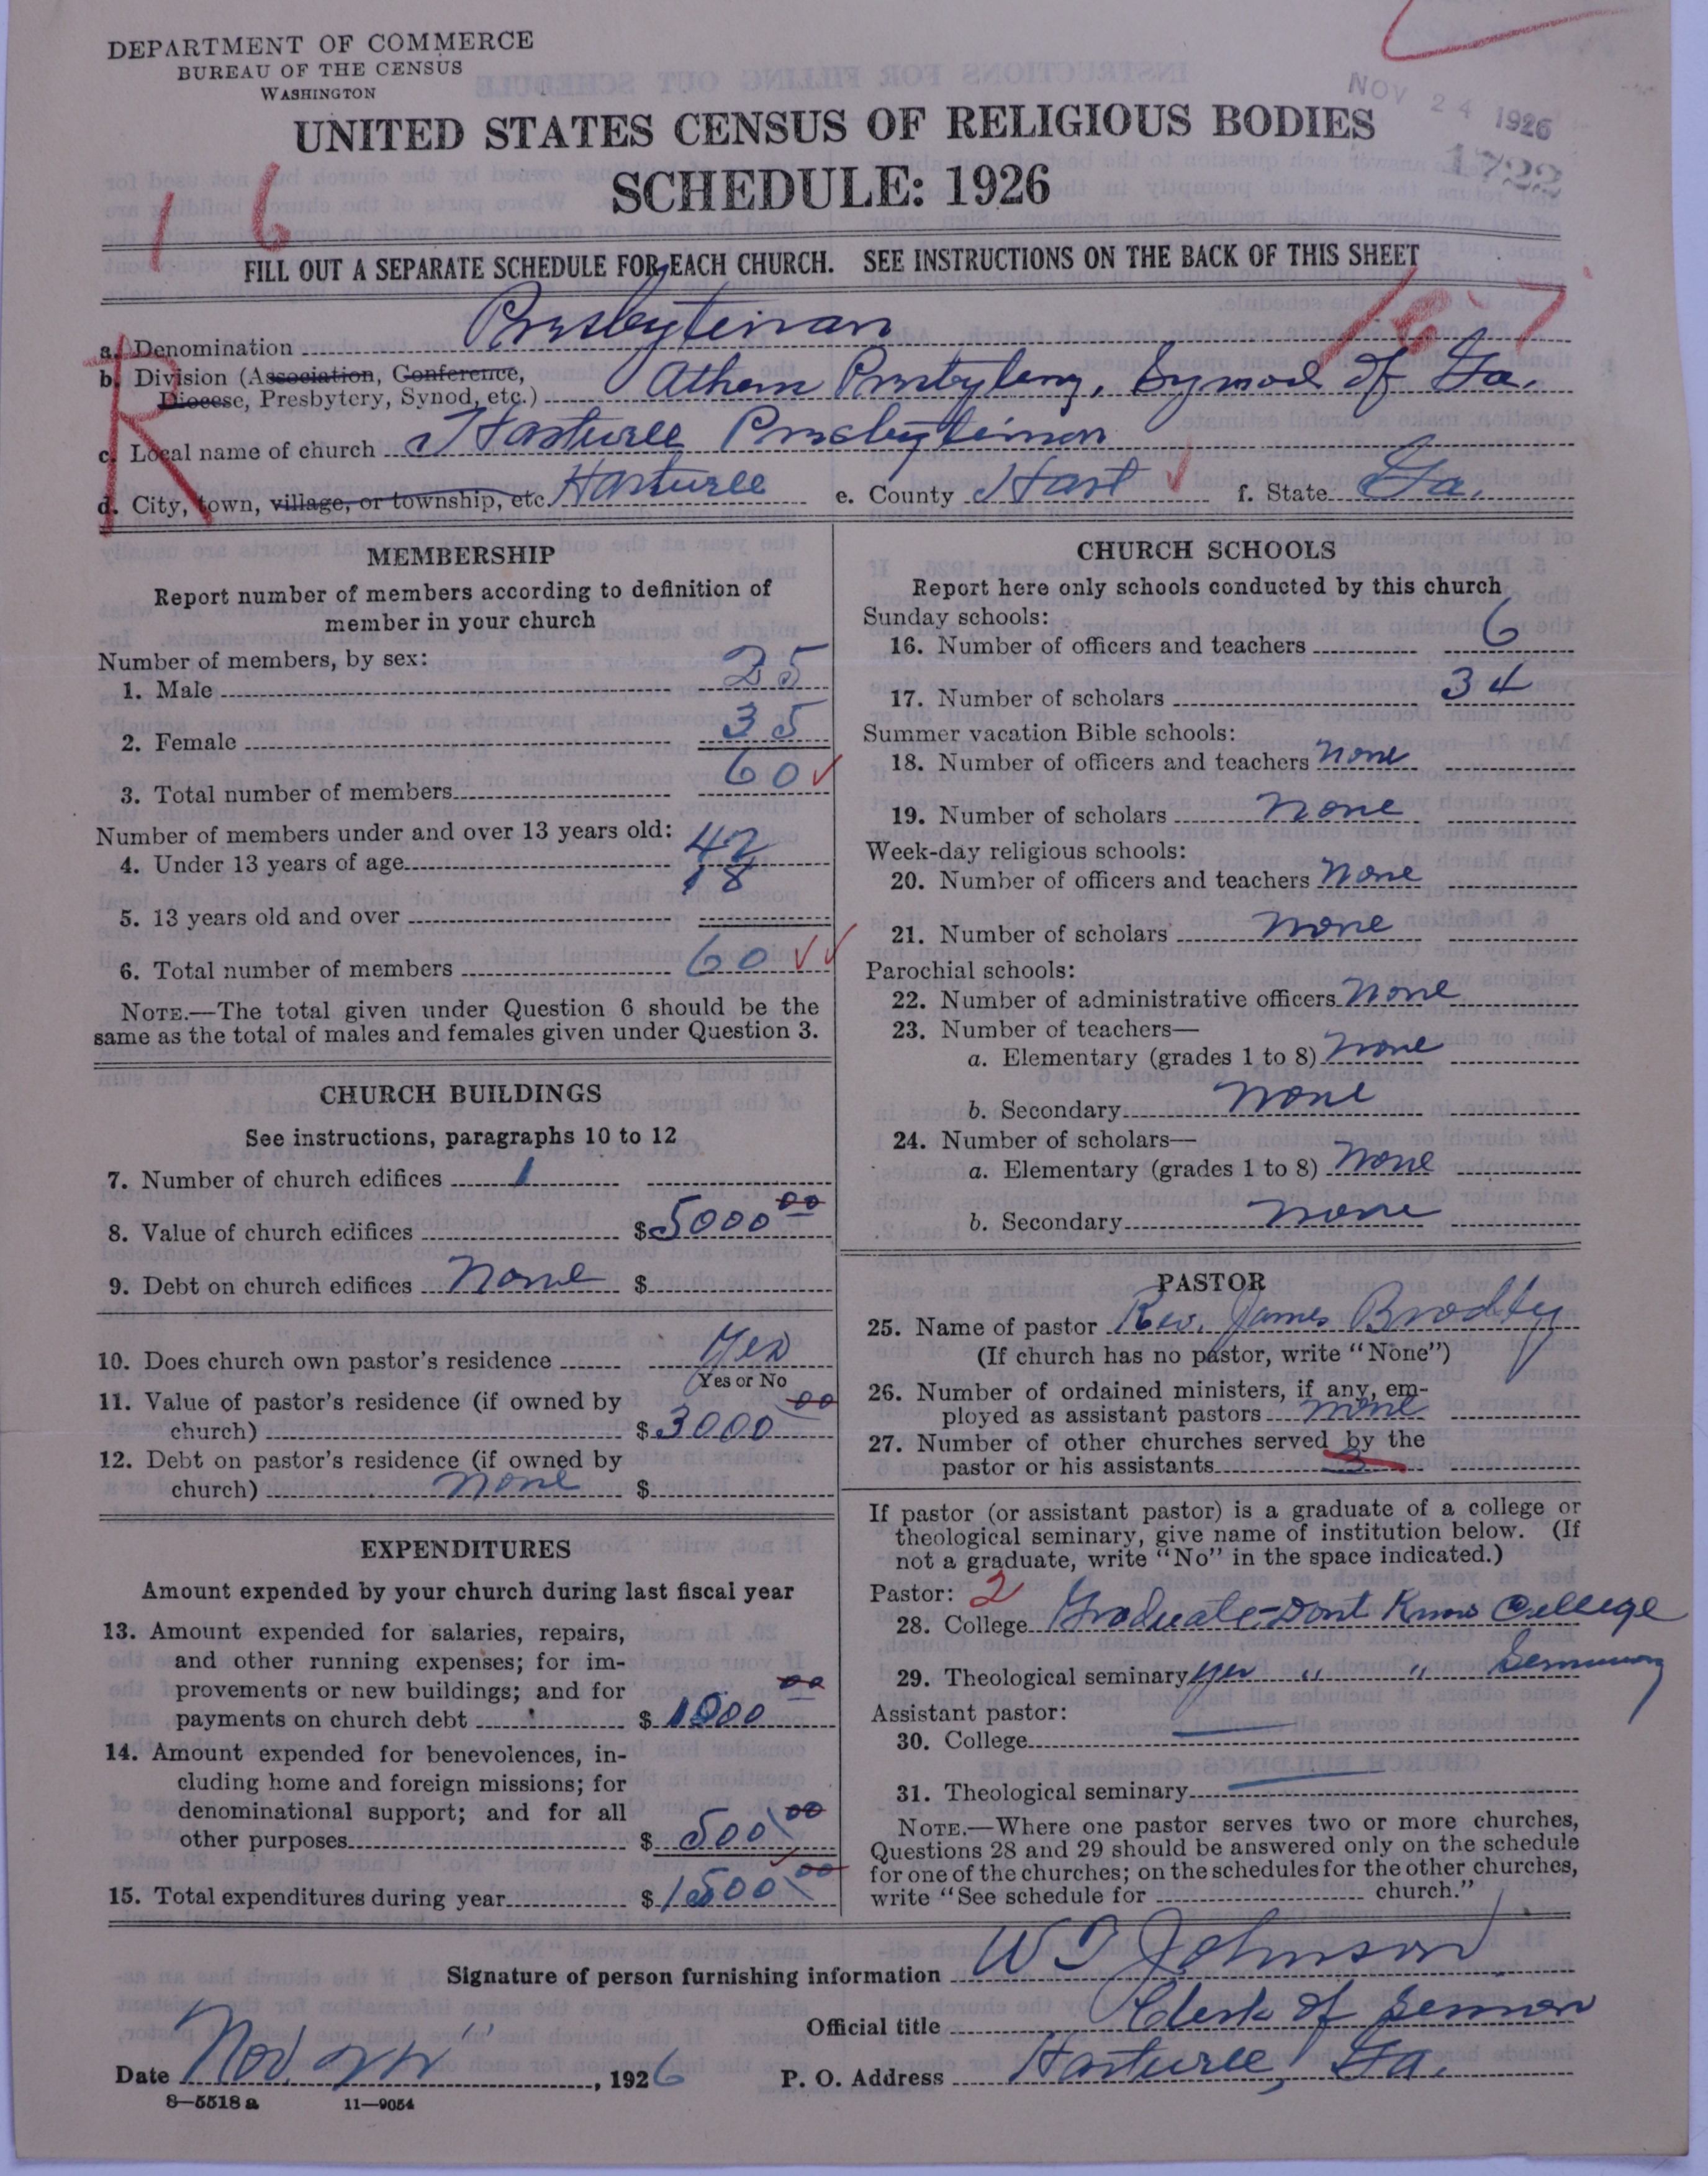 DEPARTMENT OF COMMERCE
BUREAU OF THE CENSUS
WASHINGTON
NOV 24 1926
1722
UNITED STATES CENSUS OF RELIGIOUS BODIES
SCHEDULE: 1926
16
FILL OUT A SEPARATE SCHEDULE FOR EACH CHURCH. SEE INSTRUCTIONS ON THE BACK OF THIS SHEET
a. Denomination Presbyterian
b. Division (Association, Conference, Diocese, Presbytery, Synod, etc.) Athens Presbytery, Synod of Ga.
c. Local name of church Hartwell Presbyterian
d. City, town, village, or township, etc. Hartwell e. County Hart f. State Ga.
MEMBERSHIP
Report number of members according to definition of
member in your church
Number of members, by sex:
1. Male 25
2. Female 35
3. Total number of members 60
Number of members under and over 13 years old:
4. Under 13 years of age 42
5. 13 years old and over 18
6. Total number of members 60
NOTE.—The total given under Question 6 should be the
same as the total of males and females given under Question 3.
CHURCH BUILDINGS
See instructions, paragraphs 10 to 12
7. Number of church edifices 1
8. Value of church edifices $5000 00
9. Debt on church edifices None $
10. Does church own pastor's residence Yes
Yes or No
11. Value of pastor's residence (if owned by
church) $3000 00
12. Debt on pastor's residence (if owned by
church) none $
EXPENDITURES
Amount expended by your church during last fiscal year
13. Amount expended for salaries, repairs,
and other running expenses; for im-
provements or new buildings; and for
payments on church debt $ 1000 00
14. Amount expended for benevolences, in-
cluding home and foreign missions; for
denominational support; and for all
other purposes $ 500 00
15. Total expenditures during year $ 1500 00
CHURCH SCHOOLS
Report here only schools conducted by this church
Sunday schools:
16. Number of officers and teachers 6
17. Number of scholars 34
Summer vacation Bible schools:
18. Number of officers and teachers none
19. Number of scholars none
Week-day religious schools:
20. Number of officers and teachers none
21. Number of scholars none
Parochial schools:
22. Number of administrative officers none
23. Number of teachers—
a. Elementary (grades 1 to 8) none
b. Secondary none
24. Number of scholars—
a. Elementary (grades 1 to 8) none
b. Secondary none
PASTOR
25. Name of pastor Rev. James Bradley
(If church has no pastor, write "None")
26. Number of ordained ministers, if any, em-
ployed as assistant pastors none
27. Number of other churches served by the
pastor or his assistants 3
If pastor (or assistant pastor) is a graduate of a college or
theological seminary, give name of institution below. (If
not a graduate, write "No" in the space indicated.)
Pastor: 2
28. College Graduate-Dont Know College
29. Theological seminary yes " " Seminary
Assistant pastor:
30. College
31. Theological seminary
NOTE.—Where one pastor serves two or more churches,
Questions 28 and 29 should be answered only on the schedule
for one of the churches; on the schedules for the other churches,
write "See schedule for church."
Signature of person furnishing information Johnson
Official title Clerk of Session
Date Nov. 1926 P. O. Address Hartwell, Ga.
8—5518 a 11—9054